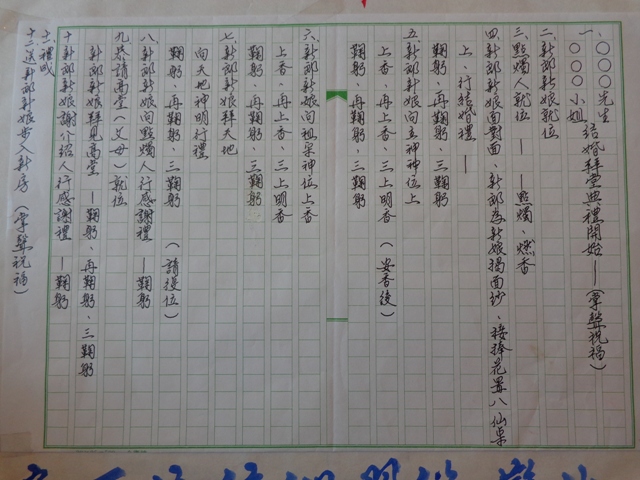 一、○○○先生
○○○小姐
結婚拜堂典禮開始——(掌聲祝福)
二、新郎新娘就位
三、點燭人就位——點燭、燃香
四、新郎新娘面對面、新郎為新娘揭面紗、接捧花置八仙桌
上、行結婚禮——
鞠躬、再鞠躬、三鞠躬
五、新郎新娘向主神神位上
上香、再上香、三上明香(安香後)
鞠躬、再鞠躬、三鞠躬
六、新郎新娘向祖宗神位上香
上香、再上香、三上明香
鞠躬、再鞠躬、三鞠躬
七、新郎新娘拜天地
向天地神明行禮
鞠躬、再鞠躬、三鞠躬(請復位)
八、新郎新娘向點燭人行感謝禮—鞠躬
九、恭請高堂(父母)就位
新郎新娘拜見高堂—鞠躬、再鞠躬、三鞠躬
十、新郎新娘謝介紹人行感謝禮—鞠躬
十一、禮成
十二、送新郎新娘步入新房(掌聲祝福)